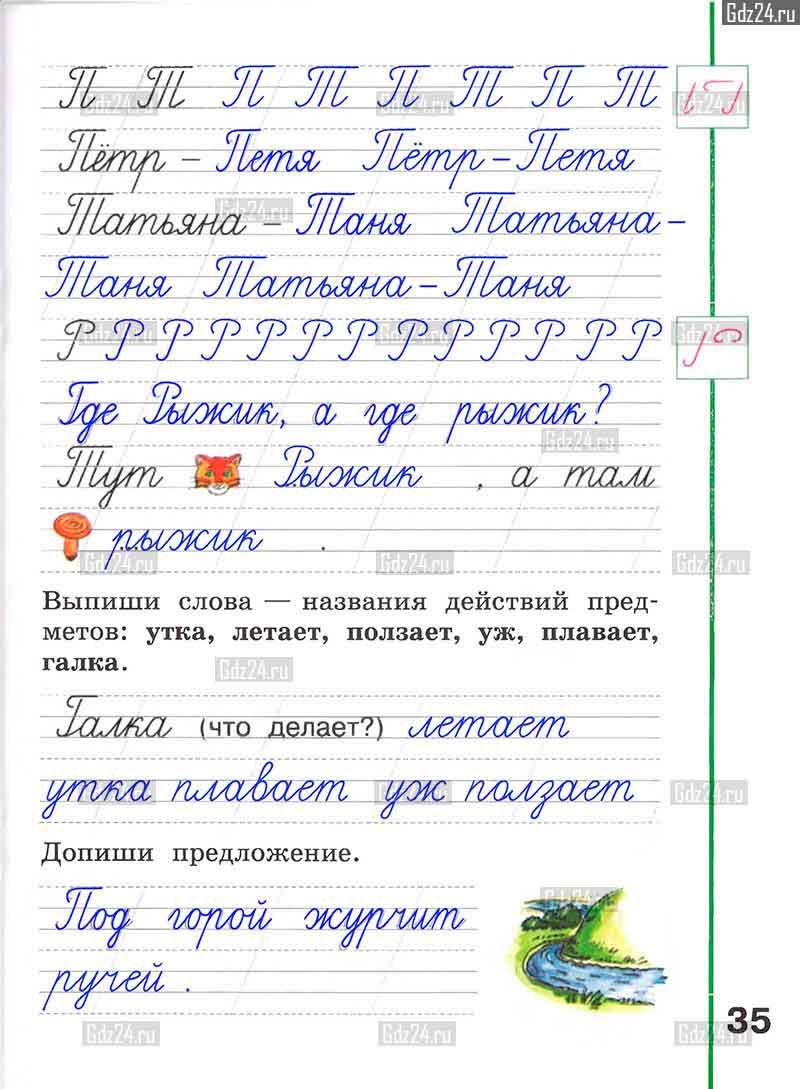 Gdz24.ru
П Т П Т П Т П Т
Пётр – Петя Пётр – Петя
Татьяна – Таня Татьяна –
Таня Татьяна – Таня
Р Р Р Р Р Р Р Р Р Р Р Р Р
Где Рыжик, а где рыжик?
Тут Рыжик , а там
рыжик .
Выпиши слова — названия действий пред-
метов: утка, летает, ползает, уж, плавает,
галка.
Галка (что делает?) летает
утка плавает уж ползает
Допиши предложение.
Под горой журчит
ручей .
35